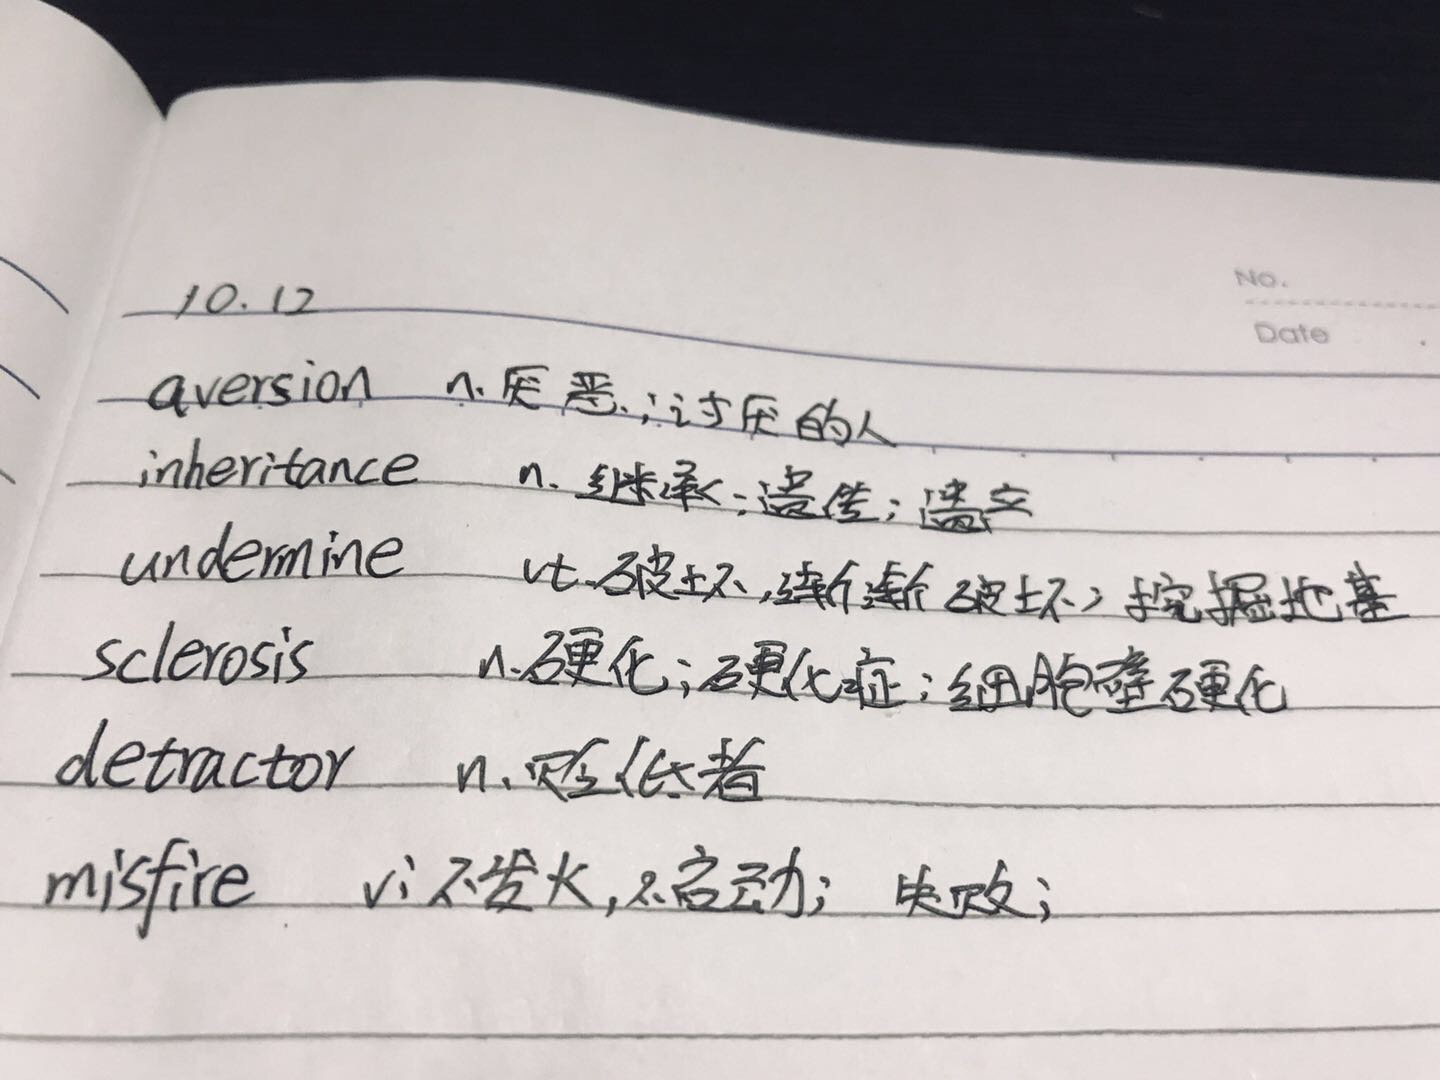 No.
Date
10.12
aversion n. 厌恶；讨厌的人
inheritance n. 继承；遗传；遗产
undermine vt. 破坏，渐渐破坏；挖掘地基
sclerosis n. 硬化；硬化症；细胞壁硬化
detractor n. 贬低者
misfire vi 不发火，不启动； 失败；